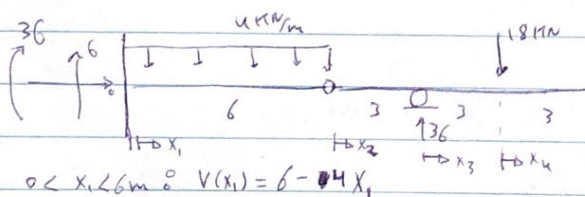 36
6
4 KN/m
18 KN
6
3
3
3
36
x₁
x₂
x₃
x₄
0 < x₁ < 6m : V(x₁) = 6 - 4x₁